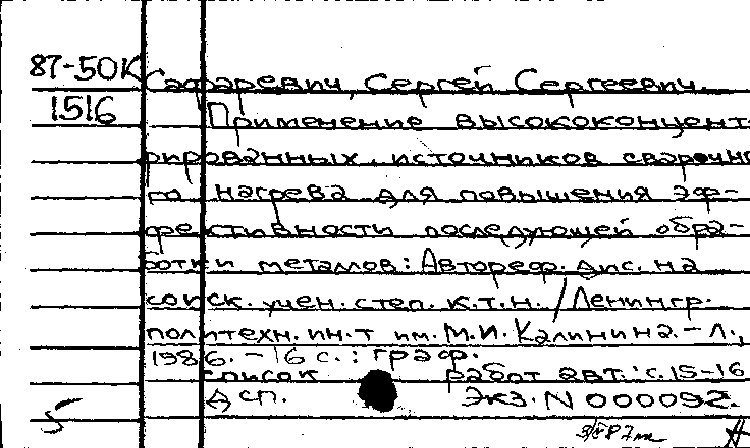 87-50К Сафаревич, Сергей Сергеевич.
1516 Применение высококонцент-
рированных источников сварочно
го нагрева для повышения эф-
фективности последующей обра-
ботки металлов: Автореф. дис. на
соиск. учен. степ. к.т.н. / Ленингр.
политехн. ин-т им. М.И. Калинина. – Л.,
1986. – 16 с. : граф.
Список работ авт.: с. 15-16
ДСП. Экз. N 000092.
5